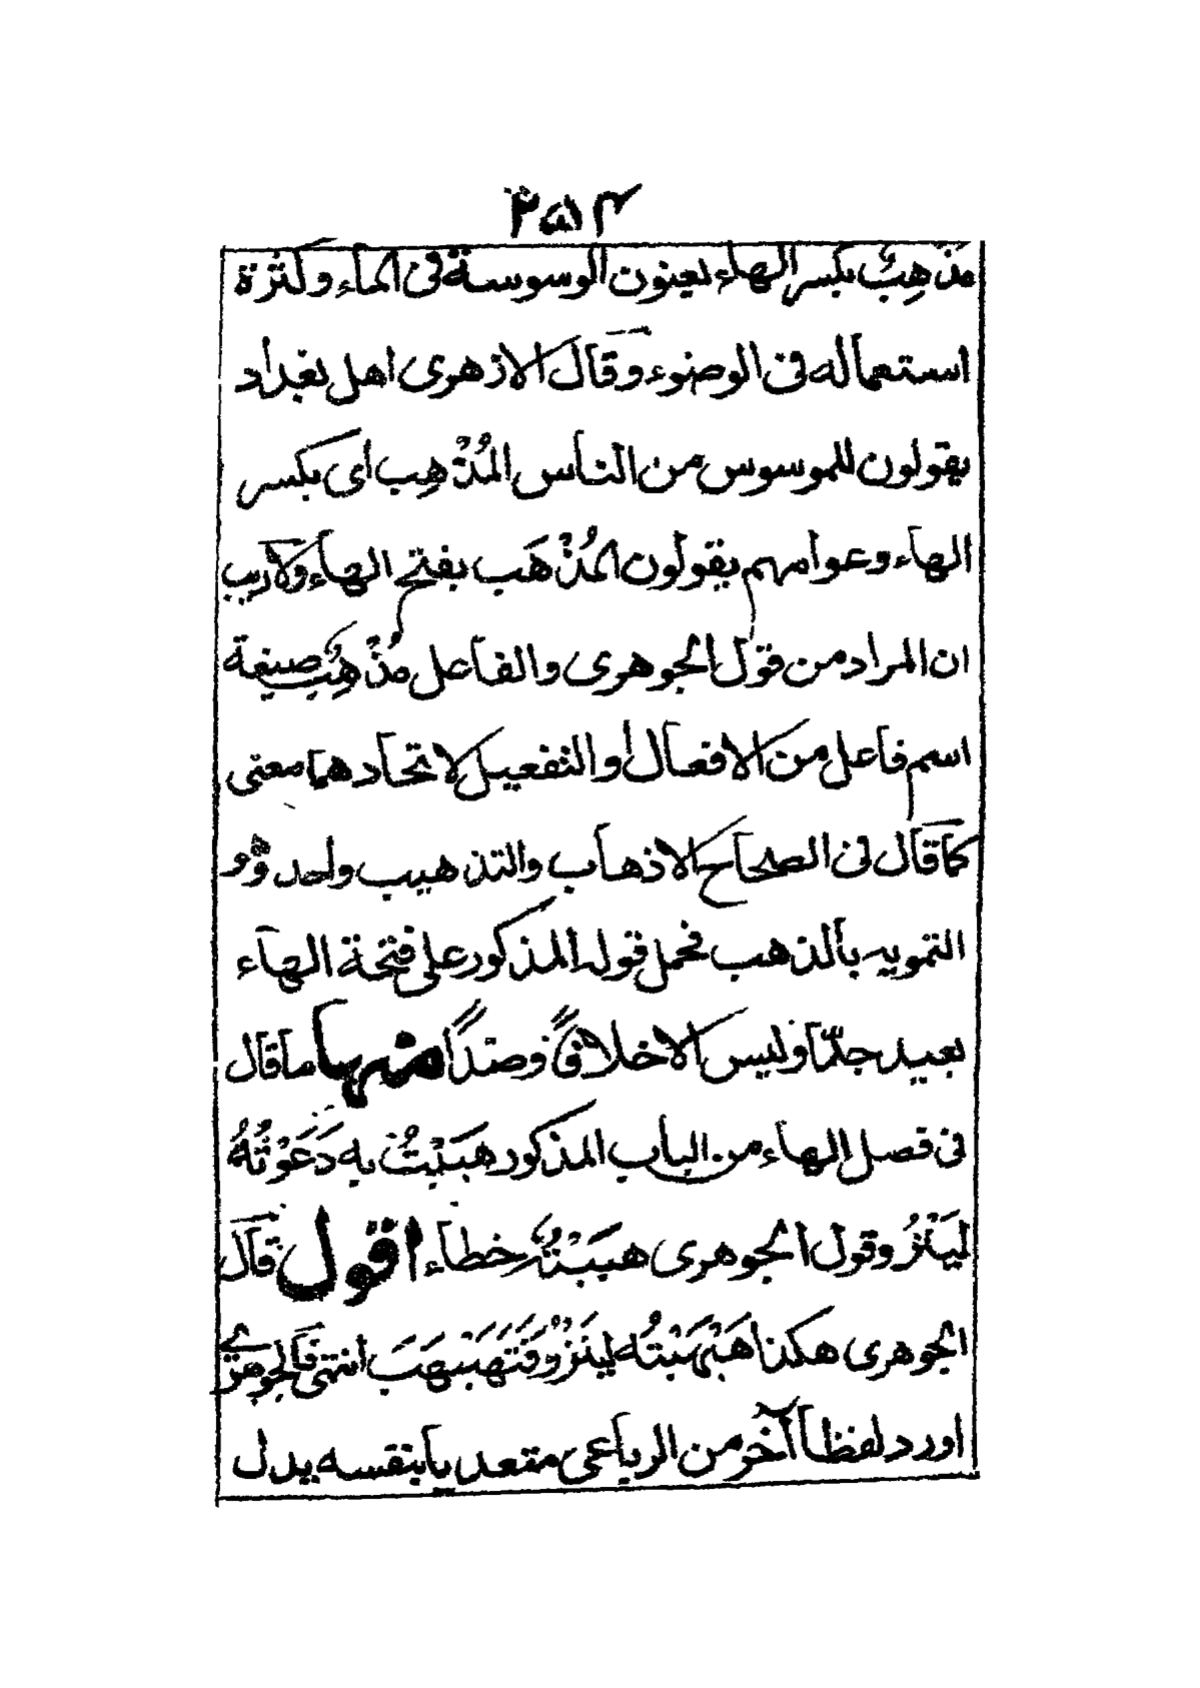 ٢٥٤
مذهِبٌ بكسر الهاء يعنون الوسوسة فى الماء وكثرة
استعماله فى الوضوء وقال الازهرى اهل بغداد
يقولون للموسوس من الناس المُذْهِب اى بكسر
الهاء وعوامهم يقولون المُذْهَب بفتح الهاء ولاريب
ان المراد من قول الجوهرى والفاعل مُذْهِبٌ صيغة
اسم فاعل من الافعال او التفعيل لاتحادهما معنى
كما قال فى الصحاح الاذهاب والتذهيب واحد وهو
التمويه بالذهب فحمل قوله المذكور على فتحة الهاء
بعيد جدّا وليس الاخلافًا وصَدًّا منها ما قال
فى فصل الهاء من الباب المذكور هَبْهَبْتُ به دَعَوْتُهُ
لِيَنْزُوَ وقول الجوهرى هببْتُهُ خطاء اقول قال
الجوهرى هكذا هَبْهَبْتُه لِيَنْزُوَ فَتَهَبْهَبَ انتهى فالجوهرى
اورد لفظا آخر من الرباعى متعد يا بنفسه بدل